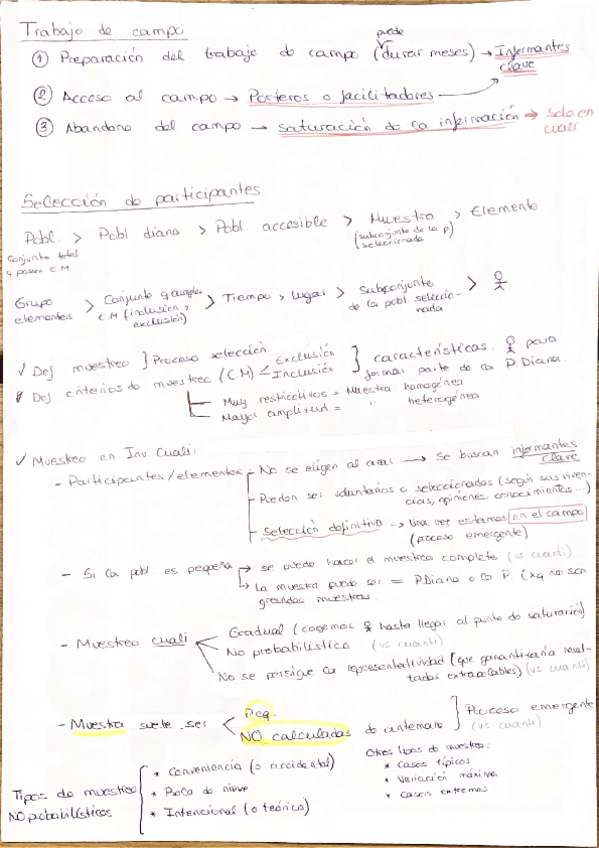 Trabajo de campo
① Preparación del trabajo de campo (puede durar meses) → Informantes clave
② Acceso al campo → Porteros o facilitadores
③ Abandono del campo → Saturación de la información → solo en cuali
Selección de participantes
Pobl. > Pobl diana > Pobl. accesible > Muestra > Elemento
Conjunto total q poseen CM
(subconjunto de la p) seleccionada
Grupo elementos > Conjunto q cumplen CM (inclusión y exclusión) > Tiempo y lugar > Subconjunto de la pobl. seleccionada >
✓ Def muestreo } Proceso selección
Def criterios de muestreo (CM) < Exclusión Inclusión } características para formar parte de la P Diana.
Muy restrictivos = Muestra homogénea
Mayor amplitud = " heterogénea
✓ Muestreo en Inv Cuali:
- Participantes/elementos - No se eligen al azar → Se buscan informantes clave
- Pueden ser voluntarios o seleccionados (según sus vivencias, opiniones, conocimientos...)
- Selección definitiva → Una vez estamos en el campo (proceso emergente)
- Si la pobl es pequeña → se puede hacer el muestreo completo (vs cuanti)
↳ La muestra puede ser = P Diana o la P (xq no son grandes muestras.
- Muestreo cuali < Gradual (cogemos hasta llegar al punto de saturación)
No probabilística (vs cuanti)
No se persigue la representatividad (que garantizaría resultados extrapolables) (vs cuanti)
- Muestra suele ser < Peq.
NO calculadas de antemano } Proceso emergente (vs cuanti)
Tipos de muestreo NO probabilísticos
* Conveniencia (o accidental)
* Bola de nieve
* Intencional (o teórico)
Otros tipos de muestreo:
* Casos típicos
* Variación máxima
* Casos extremos